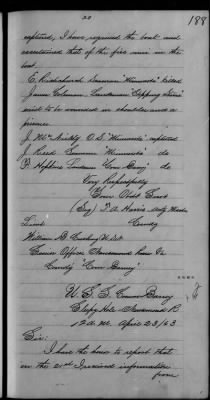 20
188
captured, I have regained the boat and
ascertained that of the five men in the
boat.
E. Richchard Seaman "Minnesota" killed
James Coleman Landsman "Epping Stone"
said to be wounded in shoulder and a
prisoner
J. McBrickly O.S. "Minnesota" captured
J. Reed Seaman "Minnesota" do
P. Hopkins Landsman "Com. Barry" do
Very Respectfully
Your Obdt Servt
(Sig) T. A. Harris Actg Master
Lieut Comdg
William B. Cushing U.S.N
Senior Officer Nansemond River Va
Comdg "Com Barney"
U.S.S. Comm Barney
Sleepy Hole Nansemond R
12 a.m. April 23/63
Sir:
I have the honor to report that
on the 21st I received information
from